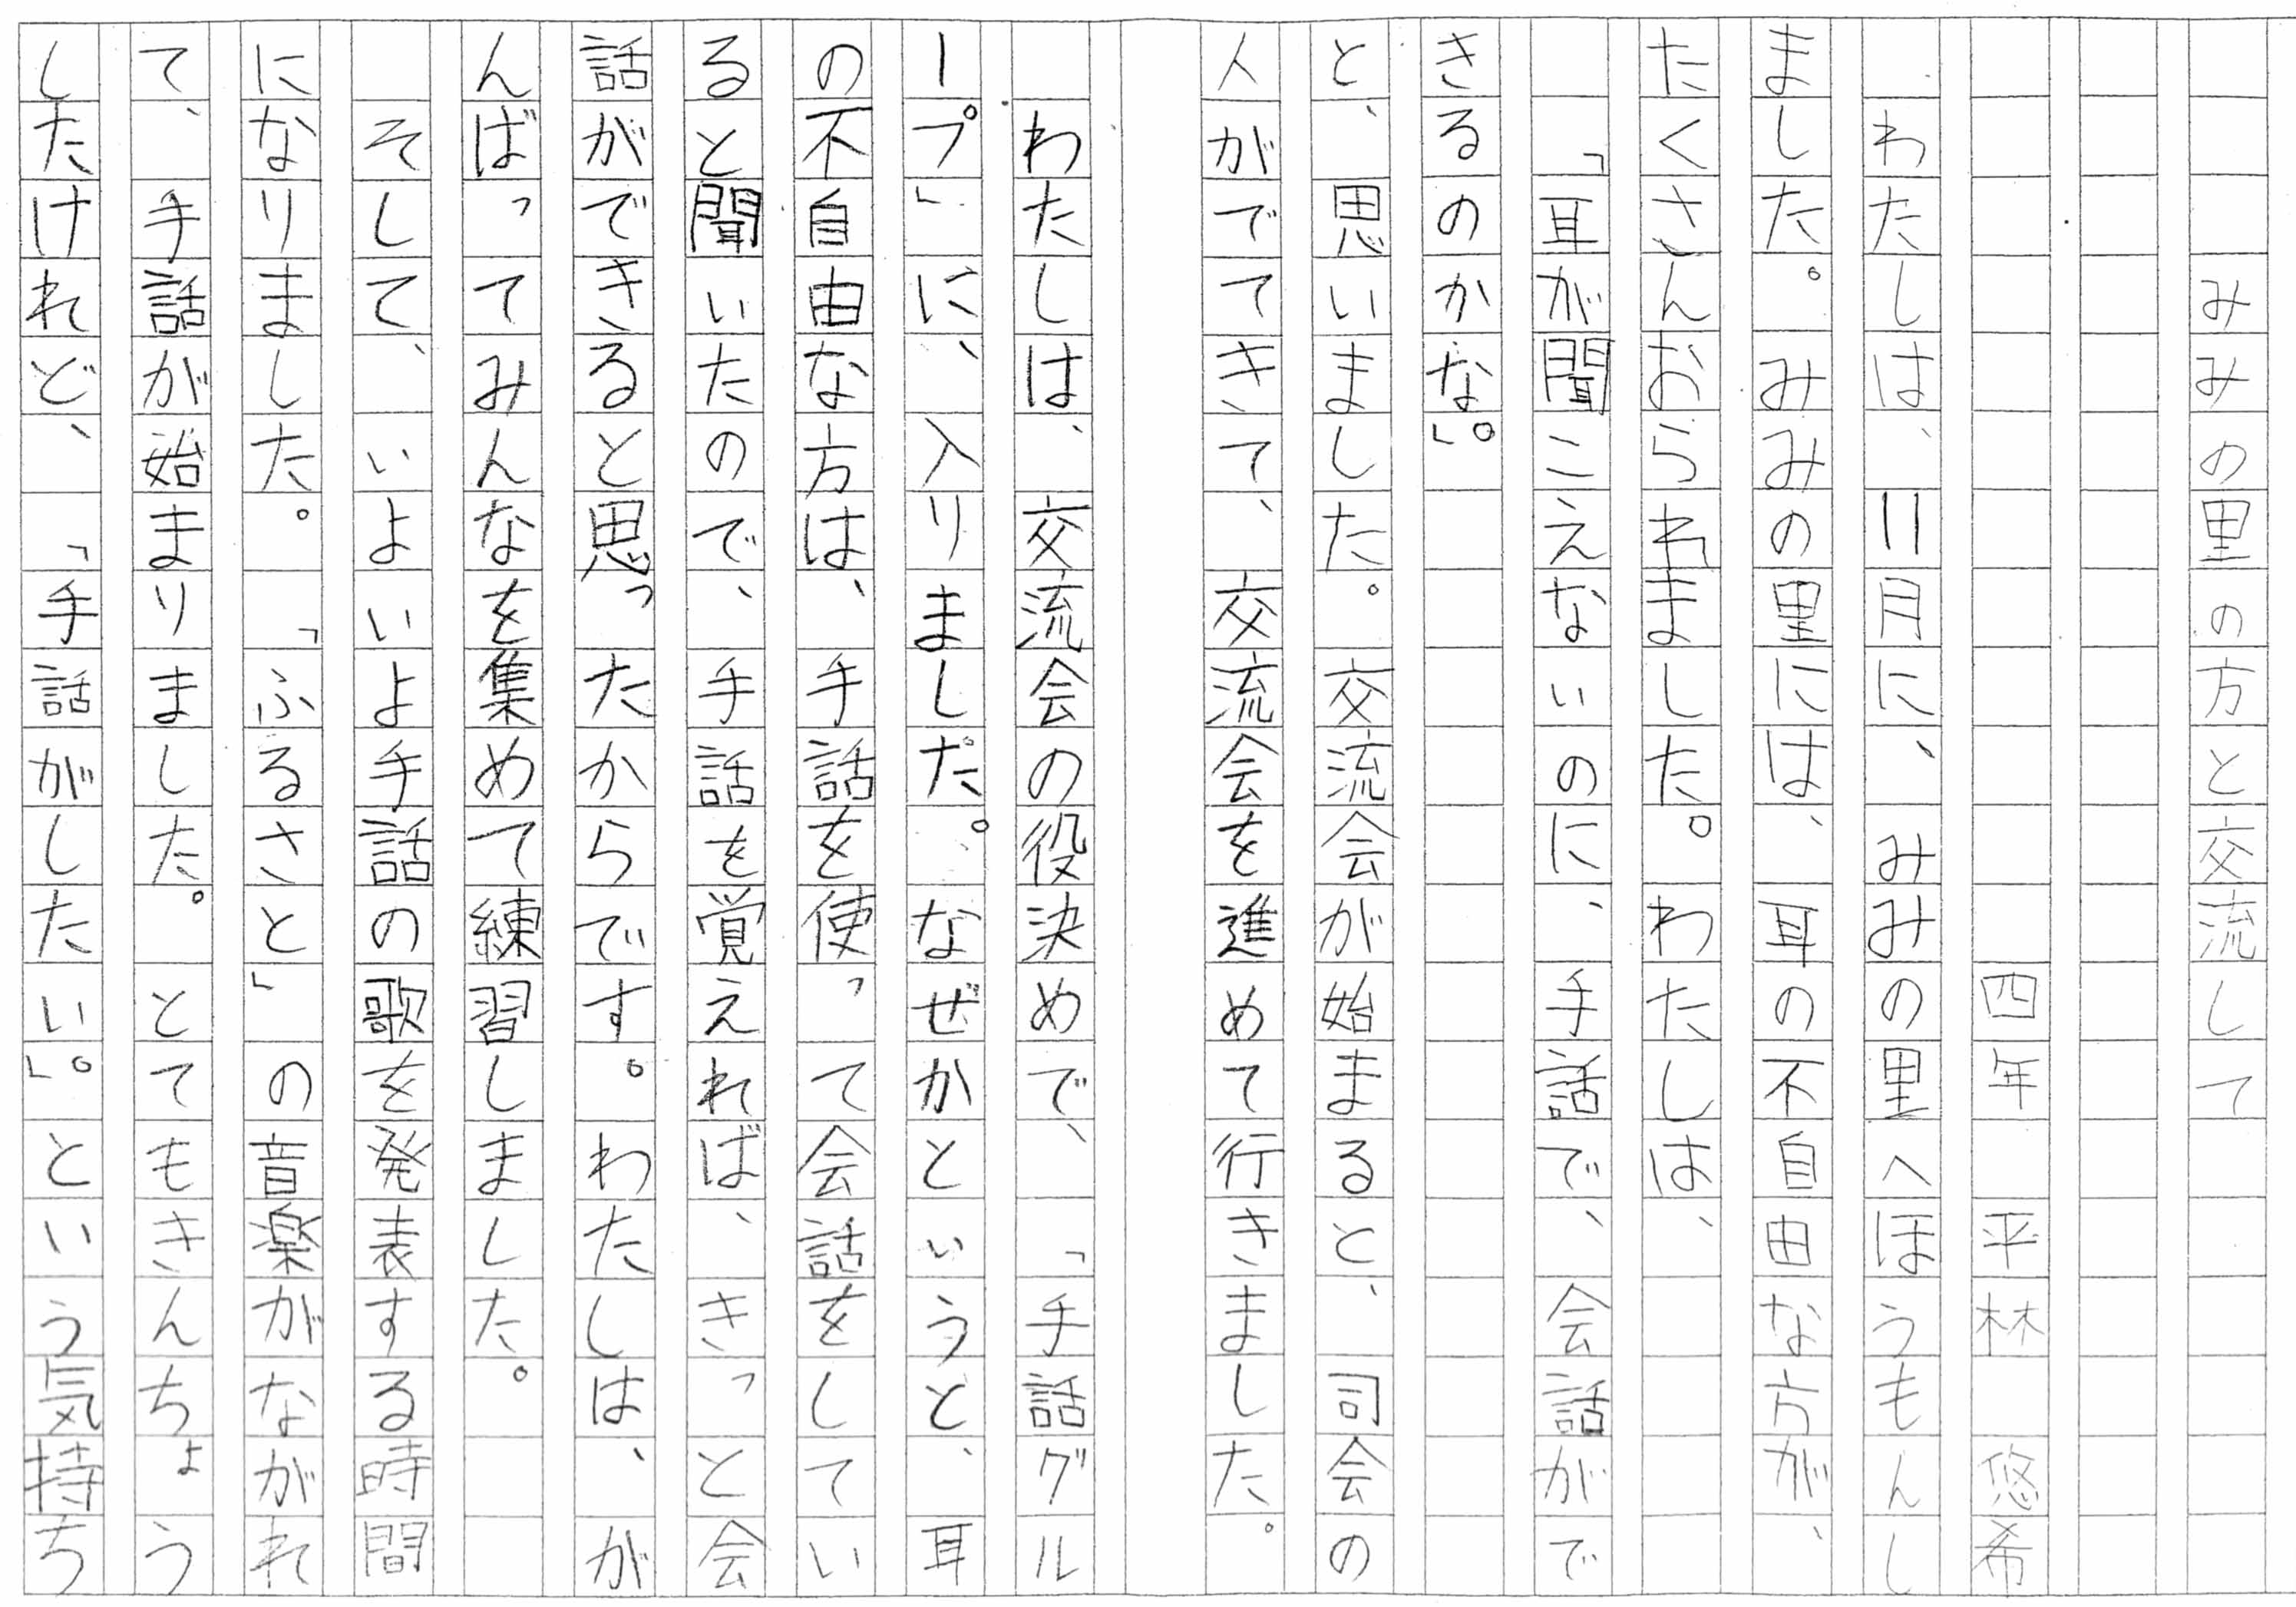 みみの里の方と交流して
四年 平林 悠希
わたしは、11月に、みみの里へほうもんし
ました。みみの里には、耳の不自由な方が、
たくさんおられました。わたしは、
「耳が聞こえないのに、手話で、会話がで
きるのかな。」
と、思いました。交流会が始まると、司会の
人がでてきて、交流会を進めて行きました。
わたしは、交流会の役決めで、「手話グル
ープ」に、入りました。なぜかというと、耳
の不自由な方は、手話を使って会話をしてい
ると聞いたので、手話を覚えれば、きっと会
話ができると思ったからです。わたしは、が
んばってみんなを集めて練習しました。
そして、いよいよ手話の歌を発表する時間
になりました。「ふるさと」の音楽がながれ
て、手話が始まりました。とてもきんちょう
したけれど、「手話がしたい。」という気持ち